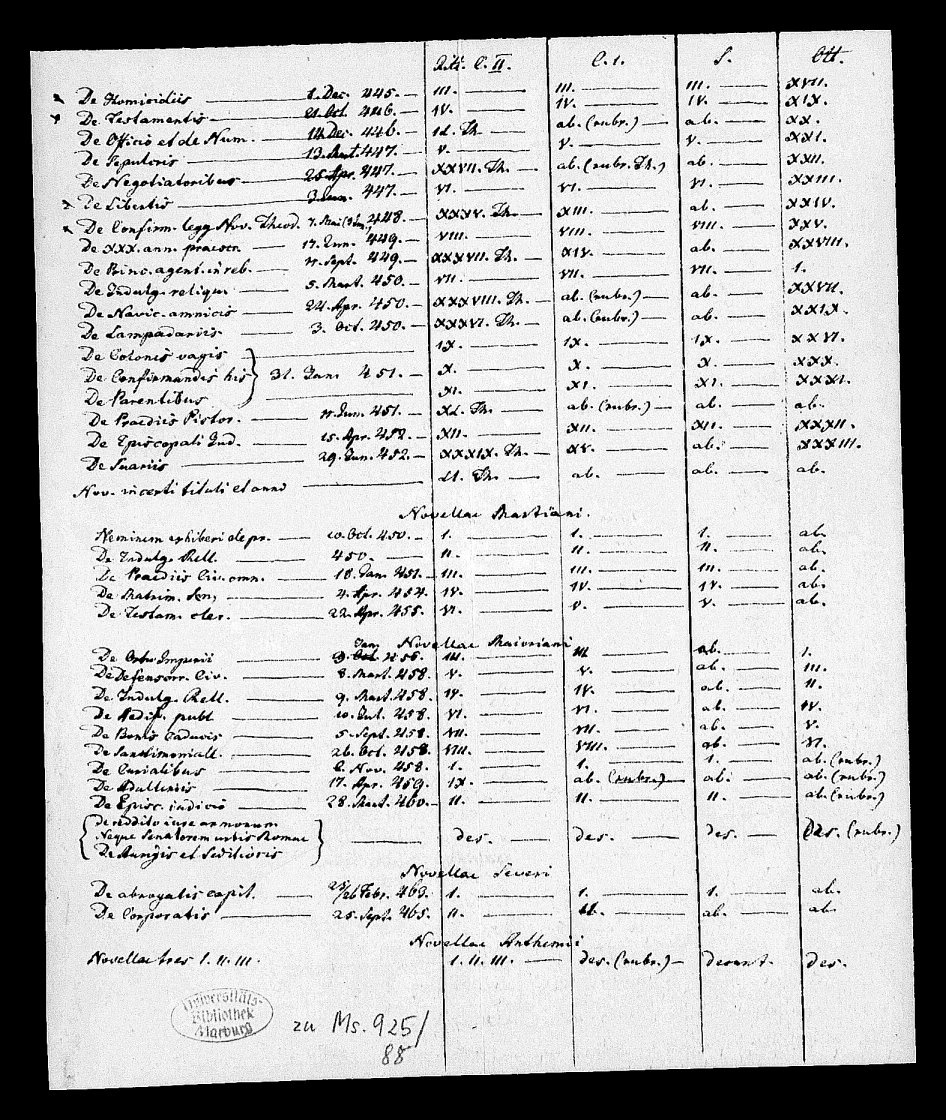 C. II. C. 1. S. Ott.
De Homicidiis 1. Dec. 445. III. III. III. XVII.
De Testamentis 21. Oct. 446. IV. IV. IV. XIX.
De Officio et de Num. 14. Dec. 446. IL. Th. ab. (rubr.) ab. XX.
De Sepulcris 13. Mart. 447. V. V. V. XXI.
De Negotiatoribus 25. Apr. 447. XXVII. Th. ab. (rubr. Th.) ab. XXII.
De Libertis 3. Jun. 447. VI. VI. VI. XXIII.
De Confirm. legg. Nov. Theod. 448. XXXV. Th. XIII. ab. XXIV.
De XXX. ann. praescr. 17. Jun. 449. VIII. VIII. VIII. XXV.
De Princ. agent. in reb. 11. Sept. 449. XXXVII. Th. XIV. ab. XXVIII.
De Indulg. reliqu. 5. Mart. 450. VII. VII. VII. 1.
De Navic. amnicis 24. Apr. 450. XXXVIII. Th. ab. (rubr.) ab. XXVII.
De Lampadariis 3. Oct. 450. XXXVI. Th. ab. (rubr.) ab. XXIX.
De Colonis vagis IX. IX. IX. XXVI.
De Confirmandis his 31. Jan. 451. X. X. X. XXX.
De Parentibus XI. XI. XI. XXXI.
De Praediis Pistor. 11. Jun. 451. XL. Th. ab. (rubr.) ab. ab.
De Episcopali Jud. 15. Apr. 452. XII. XII. XII. XXXII.
De Suariis 29. Jun. 452. XXXIX. Th. XV. ab. XXXIII.
Nov. incerti tituli et anni LI. Th. ab. ab. ab.
Novellae Martiani.
Neminem exhiberi de pr. 10. Oct. 450. 1. 1. 1. ab.
De Indulg. Rell. 450. II. II. II. ab.
De Praediis Civ. omn. 18. Jan. 451. III. III. III. ab.
De Matrim. Sen. 4. Apr. 454. IV. IV. IV. ab.
De Testam. cler. 22. Apr. 455. VI. V. V. ab.
Novellae Maioriani
De Ortu Imperii Jan. III. III ab. 1.
De Defensorr. Civ. 8. Mart. 458. V. V. ab. III.
De Indulg. Rell. 9. Mart. 458. IV. IV. ab. II.
De Aedif. publ. 10. Jul. 458. VI. VI. ab. IV.
De Bonis Caducis 5. Sept. 458. VII. VII. ab. V.
De Sanctimoniall. 26. Oct. 458. VIII. VIII. ab. VI.
De Curialibus 6. Nov. 458. 1. 1. 1. ab. (rubr.)
De Adulteriis 17. Apr. 459. IX. ab. (rubr.) ab. ab. (rubr.)
De Episc. indicio 28. Mart. 460. II. II. II. ab. (rubr.)
De reddito iure armorum
Neque Senatorem urbis Romae des. des. des. Des. (rubr.)
De Aurigis et Seditiosis
Novellae Severi
De abrogatis capit. Febr. 463. 1. 1. 1. ab.
De Corporatis 25. Sept. 465. II. ab. ab. ab.
Novellae Anthemii
Novellae tres 1. II. III. 1. II. III. des. (rubr.) desunt. des.
Universitäts-
Bibliothek
Marburg
zu Ms. 925/
88